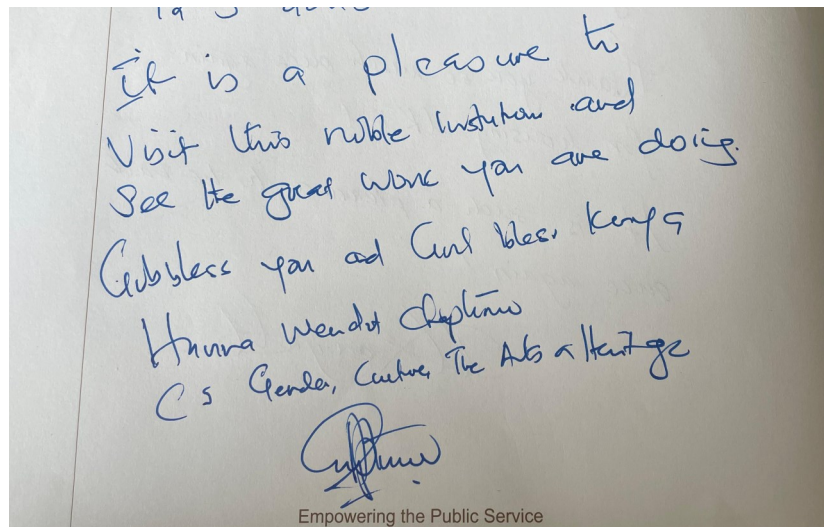 It is a pleasure to
Visit this noble Institution and
See the great work you are doing.
God bless you and God bless Kenya
Hanna Wendot Cheptumo
CS Gender, Culture, The Arts & Heritage
Empowering the Public Service